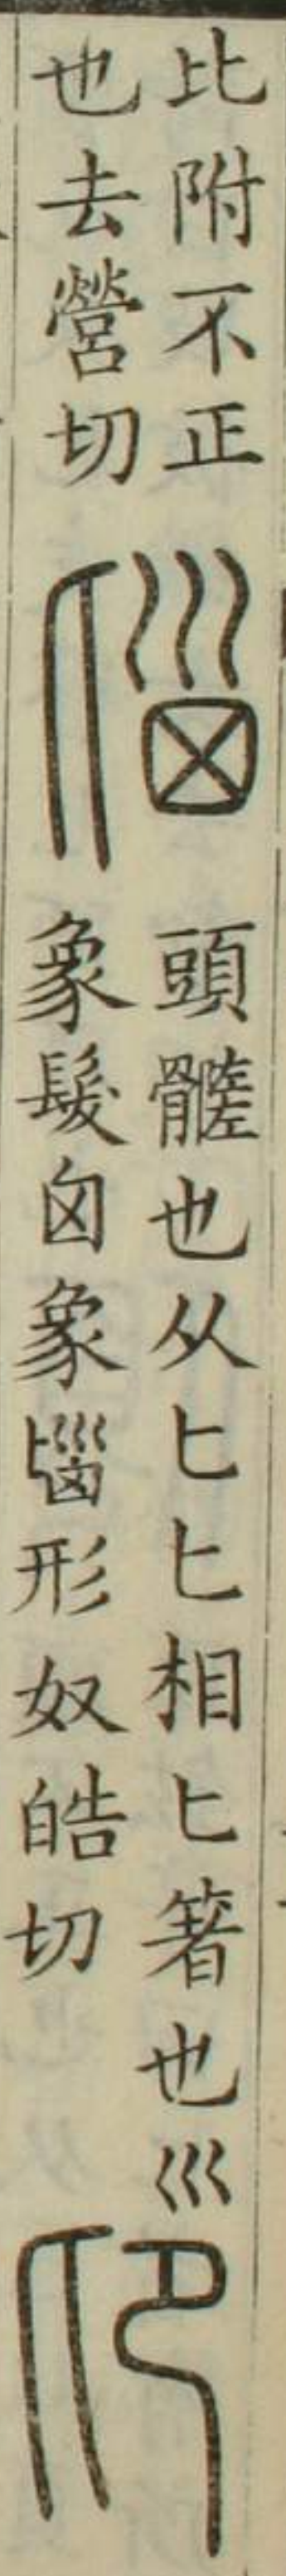 比附不正
也去營切
匘
頭䯝也从匕匕相匕箸也巛
象髮囟象匘形奴皓切
卬